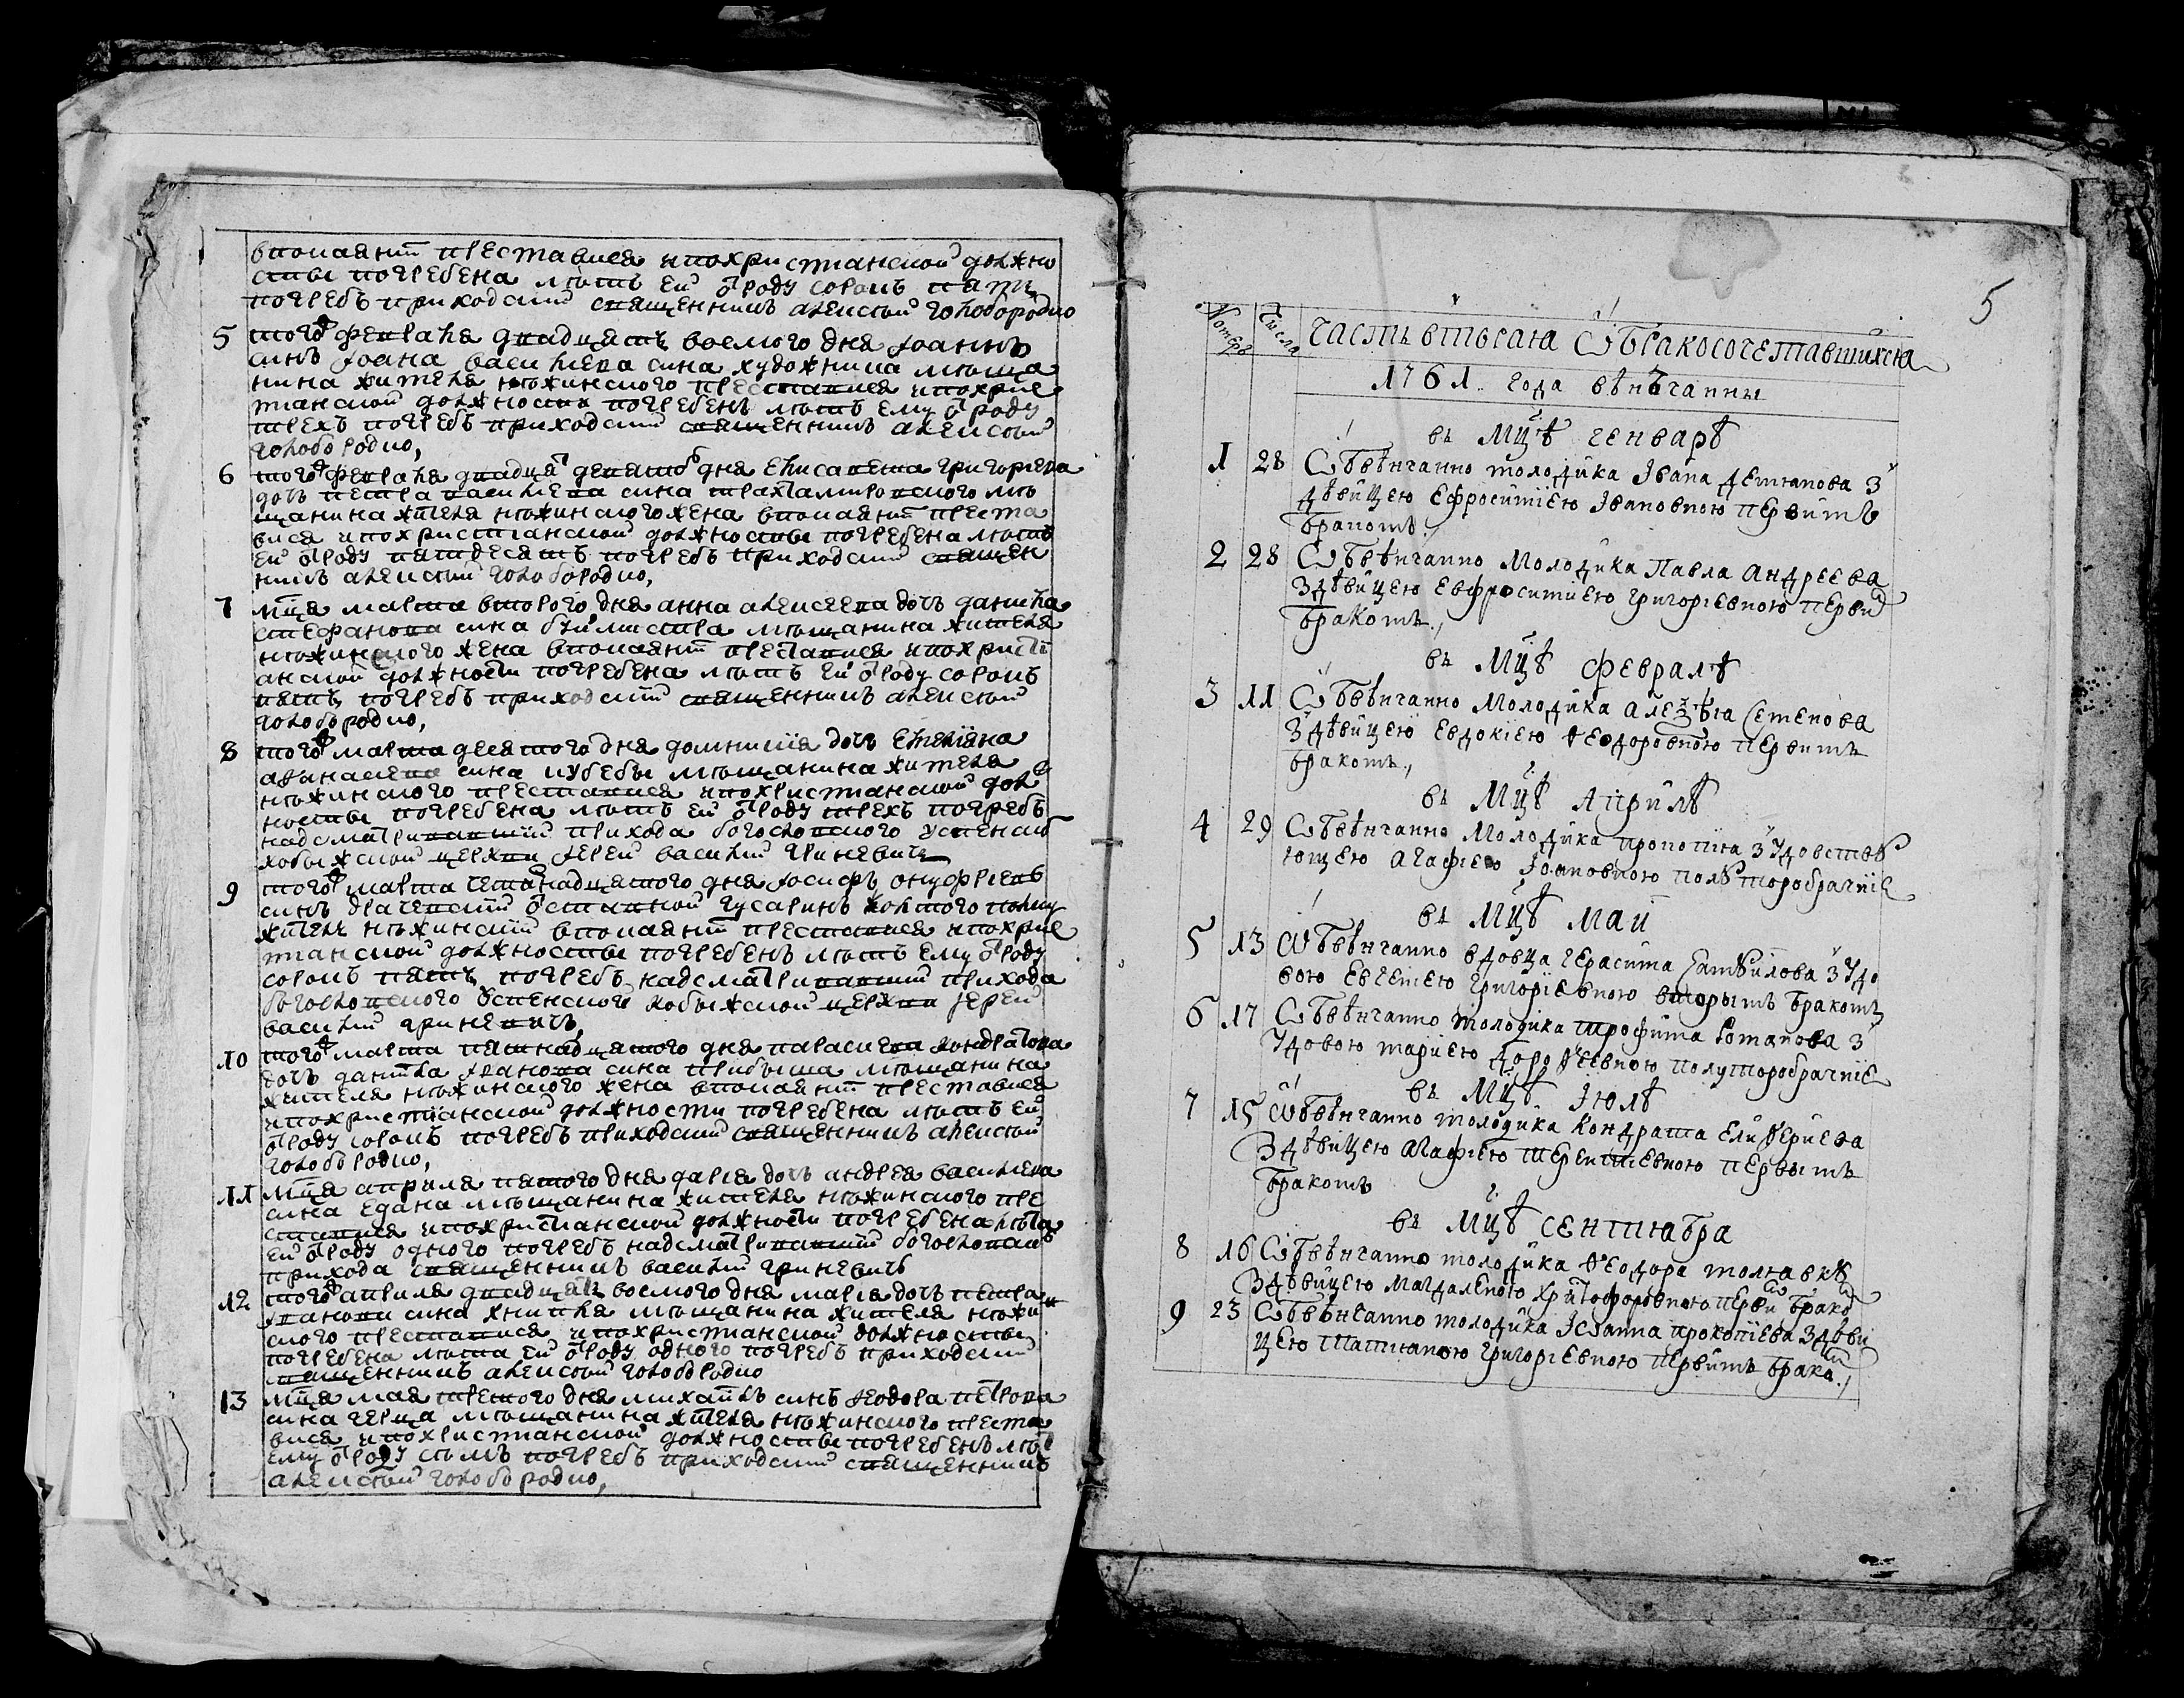 впокаянїи преставися ипохристианской должно
сти погребена лѣтъ ей ѿ роду сорокъ пять
погребъ приходскии священникъ алексѣй голобородко
5 того ж февраля двадцять восмого дня Іоаннъ
синъ Іоана василиева сина художника мѣща
нина жителя нѣжинского преставися ипохрис
тианской должности погребенъ лѣтъ ему ѿ роду
трехъ погребъ приходскии священникъ алексѣй
голобородко,
6 того ж февраля двадцят девятого дня елисавета григориева
дочь петра василиева сина мѣ
щанина жителя нѣжинского жена впокаянїи преста
вися ипохристианской должности погребена лѣтъ
ей ѿ роду пятдесятъ погребъ приходскии священ
никъ алексѣй голобородко,
7 мца марта второго дня анна алексеева дочь данила
стефанова сина мѣщанина жителя
нѣжинского жена впокаянїи преставися ипохристи
анской должности погребена лѣтъ ей ѿ роду сорокъ
пять погребъ приходскии священникъ алексѣй
голобородко,
8 того ж марта десятого дня домникия дочь емелияна
афанасиева сина кубебы мѣщанина жителя
нѣжинского преставися ипохристианской долж
ности погребена лѣтъ ей ѿ роду трехъ погребъ
надсматривавшии прихода богословского успенско
кобыжской церкви Іерей василий гриневичъ
9 того ж марта четвернадцятого дня Іосифъ онуфриевъ
синъ гусаринъ жолтого полку
жителъ нѣжинскии впокаянїи преставися ипохрис
тианской должности погребенъ лѣтъ ему ѿ роду
сорокъ пять погребъ надсматривавшии прихода
богословского успенского кобыжской церкви Іерей
василий гриневичъ,
10 того ж марта пятнадцятого дня параскева кондратова
дочь данила Іванова сина мѣщанина
жителя нѣжинского жена впокаянїи преставися
ипохристианской должности погребена лѣтъ ей
ѿ роду сорокъ погребъ приходскии священникъ алексѣй
голобородко,
11 мца априля пятого дня дария дочь андрея василиева
сина едана мѣщанина жителя нѣжинского пре
ставися ипохристианской должности погребена лѣта
ей ѿ роду одного погребъ надсматривавшии богословско
прихода священникъ василий гриневичъ
12 того ж априля двадцять восмого дня мария дочь петра
Іванова сина мѣщанина жителя нѣжин
ского преставися ипохристианской должности
погребена лѣта ей ѿ роду одного погребъ приходскии
священникъ алексѣй голобородко
13 мца мая третого дня михаилъ синъ феодора петрова
сина мѣщанина жителя нѣжинского преста
вися ипохристианской должности погребенъ лѣт
ему ѿ роду погребъ приходскии священникъ
алексѣй голобородко,
5
Номеръ Числа часть вторая Ѡ бракосочетавшихся
1761 года вѣнчанны
въ Мцѣ генварѣ
1 28 Ѡбвѣнчанно молодика Івана Демянова З
дѣвицею Ефросиниею Івановною первимъ
бракомъ.,
2 28 Ѡбвѣнчанно Молодика Павла Андреева
Здѣвицею Евфросиниею Григориевною перви
бракомъ.,
въ Мцѣ февралѣ
3 11 Ѡбвѣнчанно Молодика Алеѯѣя Семенова
Здѣвицею Евдокиею Ѳеодоровною первимъ
бракомъ.,
въ Мцѣ Априлѣ
4 29 Ѡбвѣнчанно Молодика прокопия З Удовству
ющею Агафиею Іоановною полуторобрачние
въ Мцѣ Маи
5 13 Ѡбвѣнчанно вдовца Герасима Самуилова З Удо
вою Евгениею Григориевною вторымъ бракомъ
6 17 Ѡбвѣнчанно молодика трофима Романова З
Удовою мариею Дорофеевною полуторобрачние
въ Мцѣ Іюлѣ
7 15 Ѡбвѣнчанно молодика Кондрата Елиѳериева
Здѣвицею Агафиею терентиевною первымъ
бракомъ
въ Мцѣ сентября
8 16 Ѡбвѣнчанно молодика Ѳеодора
Здѣвицею Магдаленою Христофоровною перви брако
9 23 Ѡбвѣнчанно молодика Іоанна прокопиева Здѣви
цею татианою Григориевною первимъ брако.,